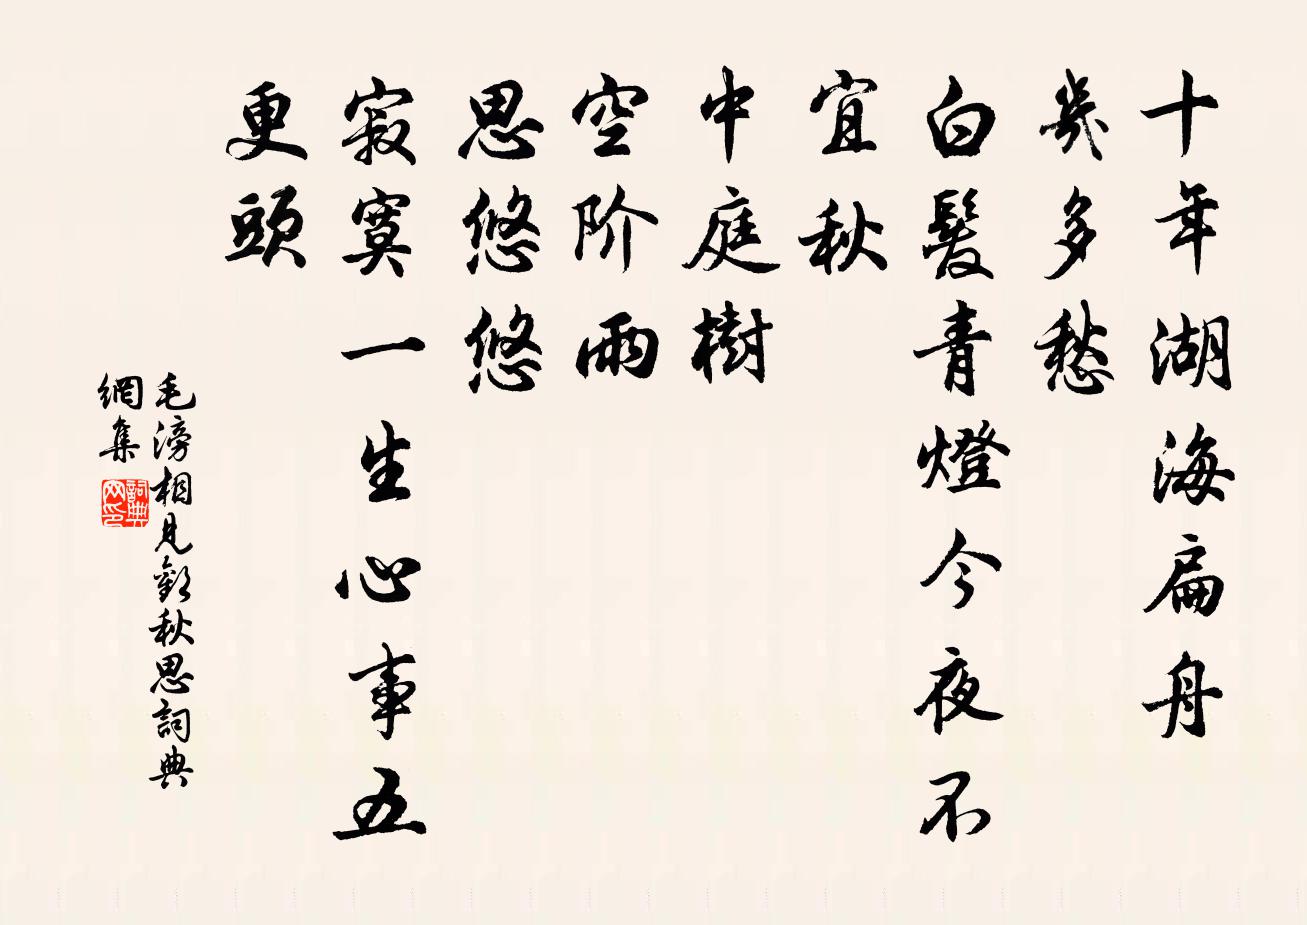 十年湖海扁舟
幾多愁
白髮青燈今夜不
宜秋
中庭樹
空阶雨
思悠悠
寂寞一生心事五
更頭
毛滂相見歡秋思詞典
網集
詞典
网印